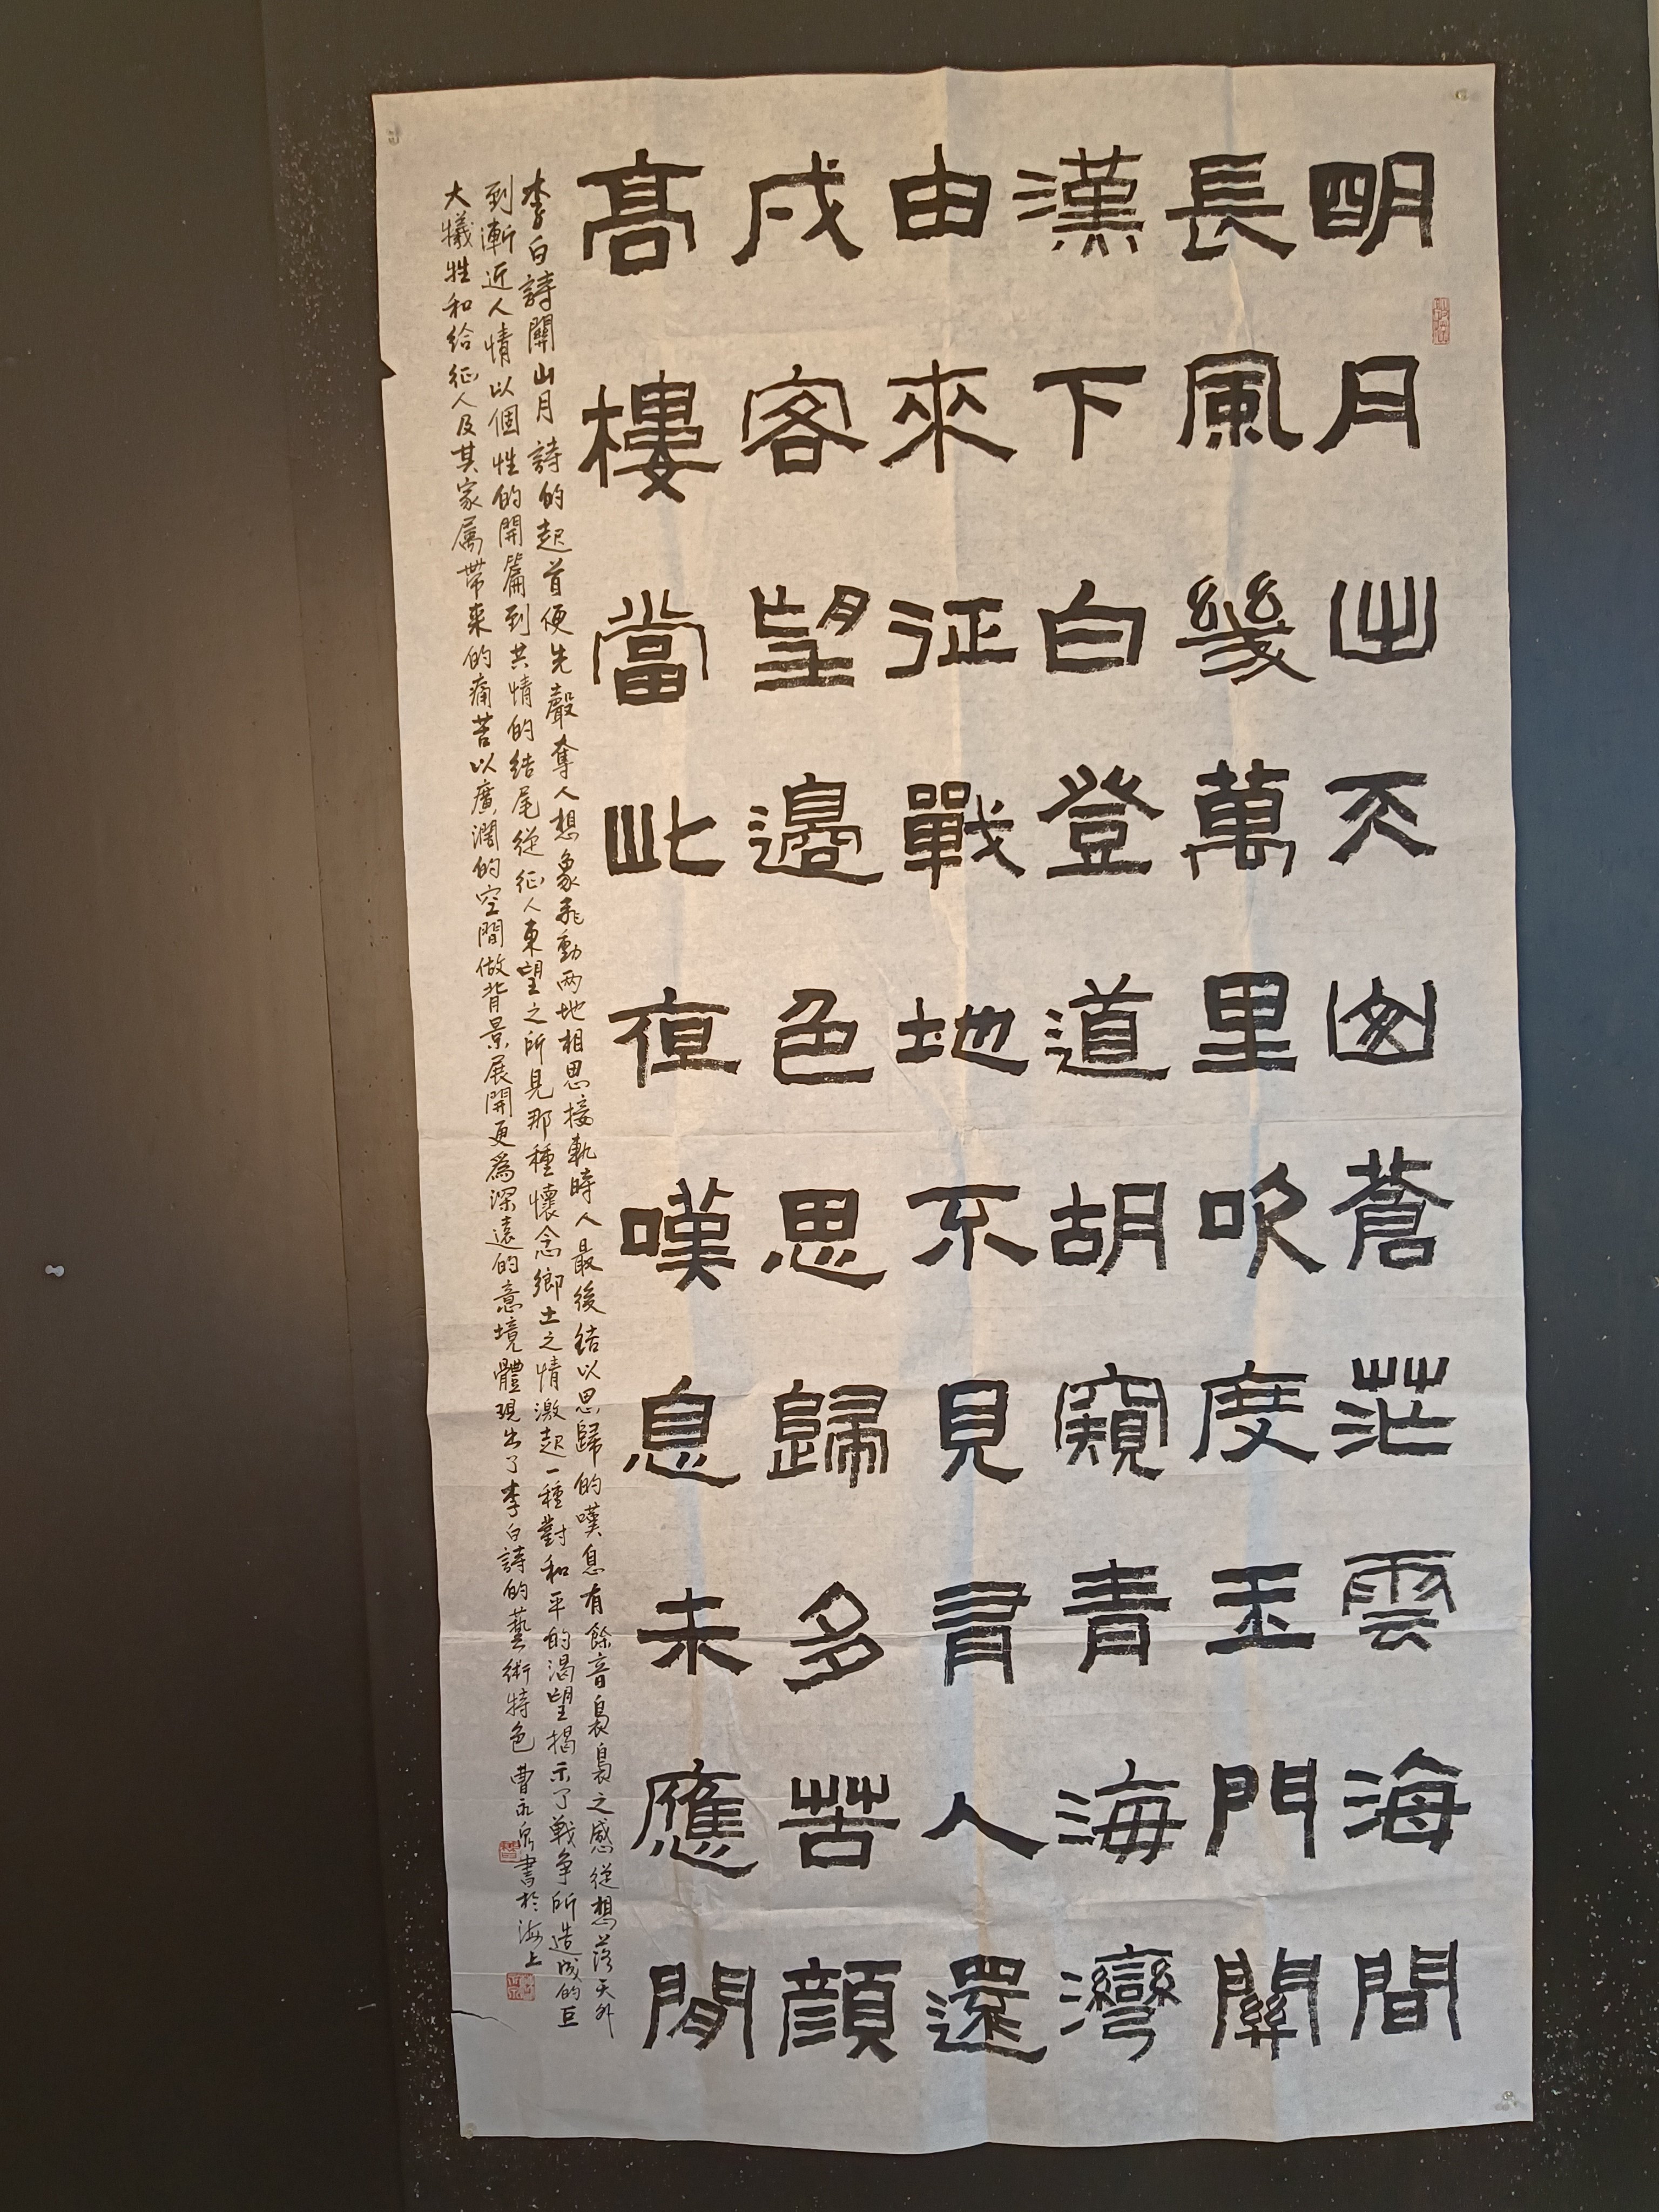 明月出天山蒼茫雲海間
長風幾萬里吹度玉門關
漢下白登道胡窺青海灣
由來征戰地不見有人還
戍客望邊色思歸多苦顏
高樓當此夜嘆息未應閒
李白詩關山月 詩的起首便先聲奪人想象飛動两地相思接軌時人最後結以思歸的嘆息有餘音裊裊之感從想落天外
到漸近人情以個性的開篇到共情的結尾從征人東望之所見那種懷念鄉土之情激起一種對和平的渴望揭示了戰争所造成的巨
大犧牲和給征人及其家属帶来的痛苦以廣濶的空間做背景展開更為深遠的意境體現出了李白詩的藝術特色 曹永泉書於海上